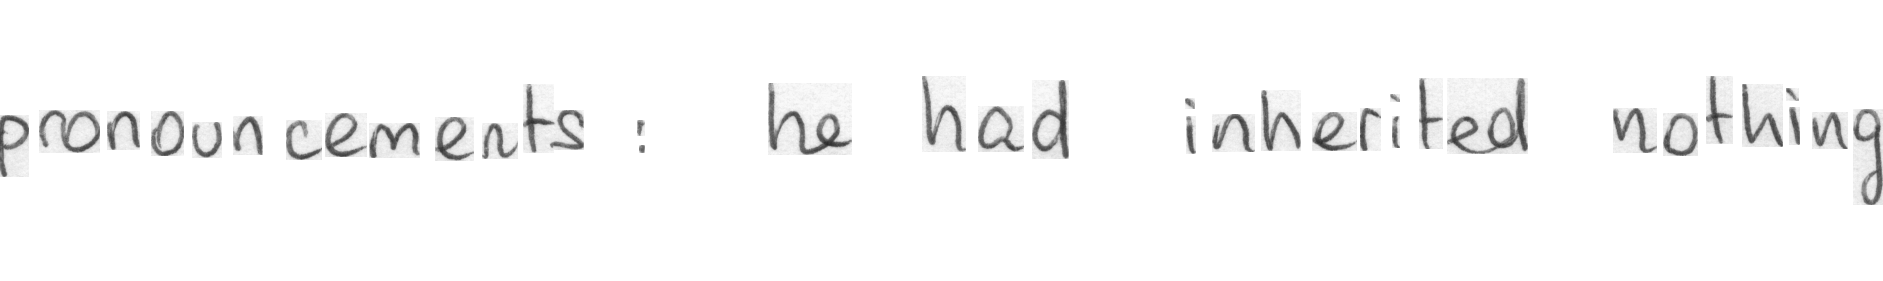 pronouncements : he had inherited nothing